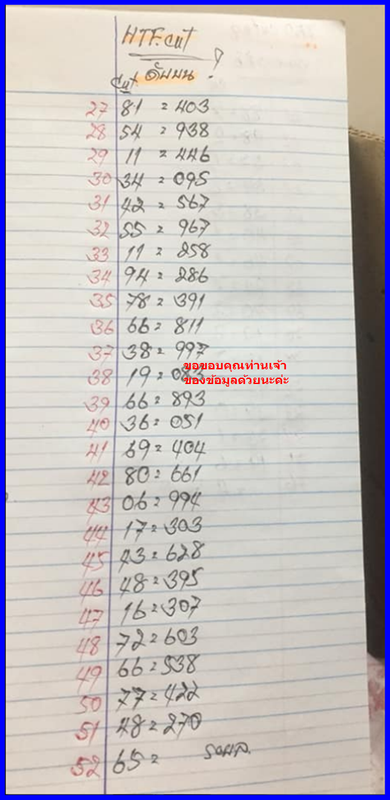 HTF.cut
Cut. ดับบน !
27 81 = 403
28 54 = 938
29 11 = 446
30 34 = 095
31 42 = 567
32 55 = 967
33 11 = 258
34 94 = 286
35 78 = 391
36 66 = 811
37 38 = 997
38 19 = 083
ขอขอบคุณท่านเจ้า
ของข้อมูลด้วยนะค่ะ
39 66 = 893
40 36 = 051
41 69 = 404
42 80 = 661
43 06 = 994
44 17 = 303
45 43 = 628
46 48 = 395
47 16 = 307
48 72 = 603
49 66 = 538
50 77 = 422
51 48 = 270
52 65 = รอผล.